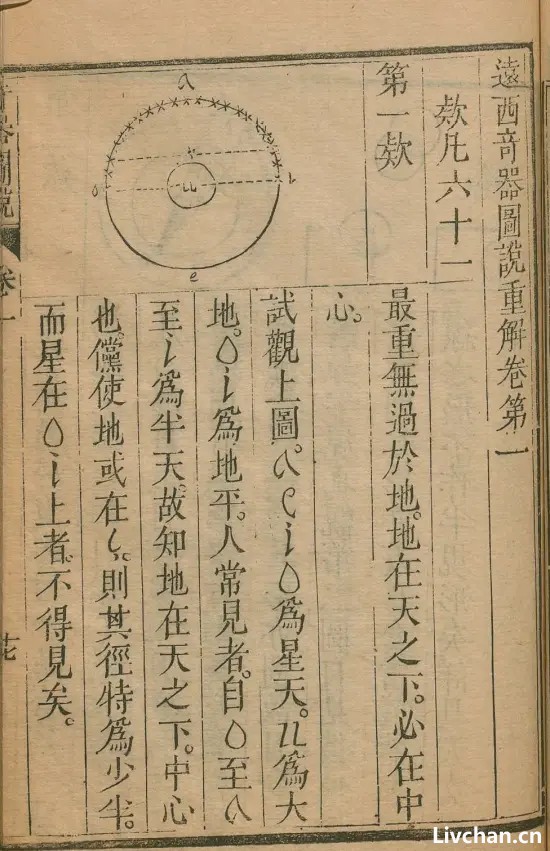 遠西奇器圖說重解卷第一
欵凡六十一
第一欵
a
o
u
i
e
最重無過於地。地在天之下。必在中
心。
試觀上圖。a e i o 爲星天。u 爲大
地。o i 爲地平。人常見者。自 o 至 a
至 i 爲半天。故知地在天之下。中心
也。儻使地或在 則其徑特爲少半。
而星在 o i 上者。不得見矣。
奇器圖說
卷一
Livchan.cn